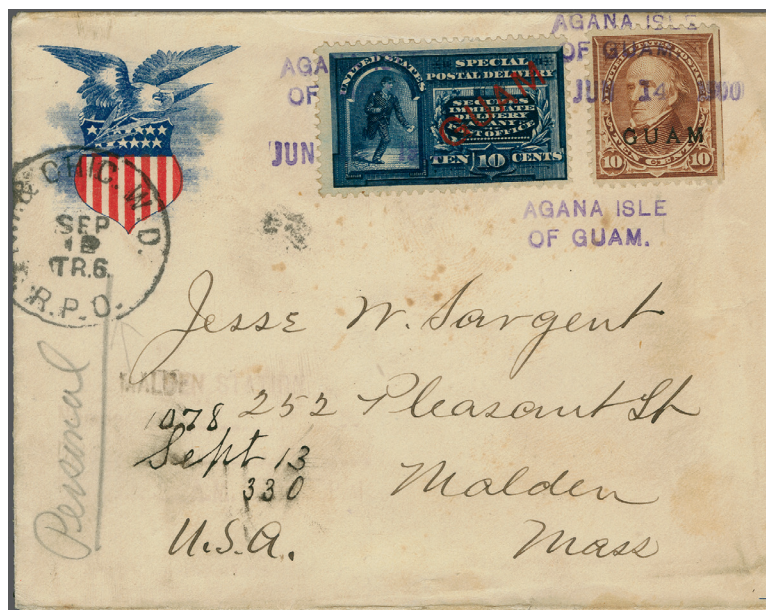 AGANA ISLE
OF GUAM.
JUN 14 1900
AGA
OF
JUN
UNITED STATES
SPECIAL
POSTAL DELIVERY
SECURES
IMMEDIATE
DELIVERY
AT ANY
POST OFFICE
TEN 10 CENTS
GUAM
GUAM
10 10
AGANA ISLE
OF GUAM.
CHIC. W.D.
SEP
TR.6.
R.P.O.
Personal
Jesse W. Sargent
MALDEN STATION
1078 252 Pleasant St
Sept 13
330
Malden
U.S.A. Mass